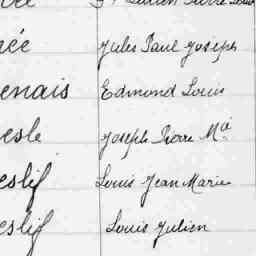 née Jules Paul Joseph
enais Edmond Louis
esle Joseph Pierre Mie
eslif Louis Jean Marie
eslif Louis Julien